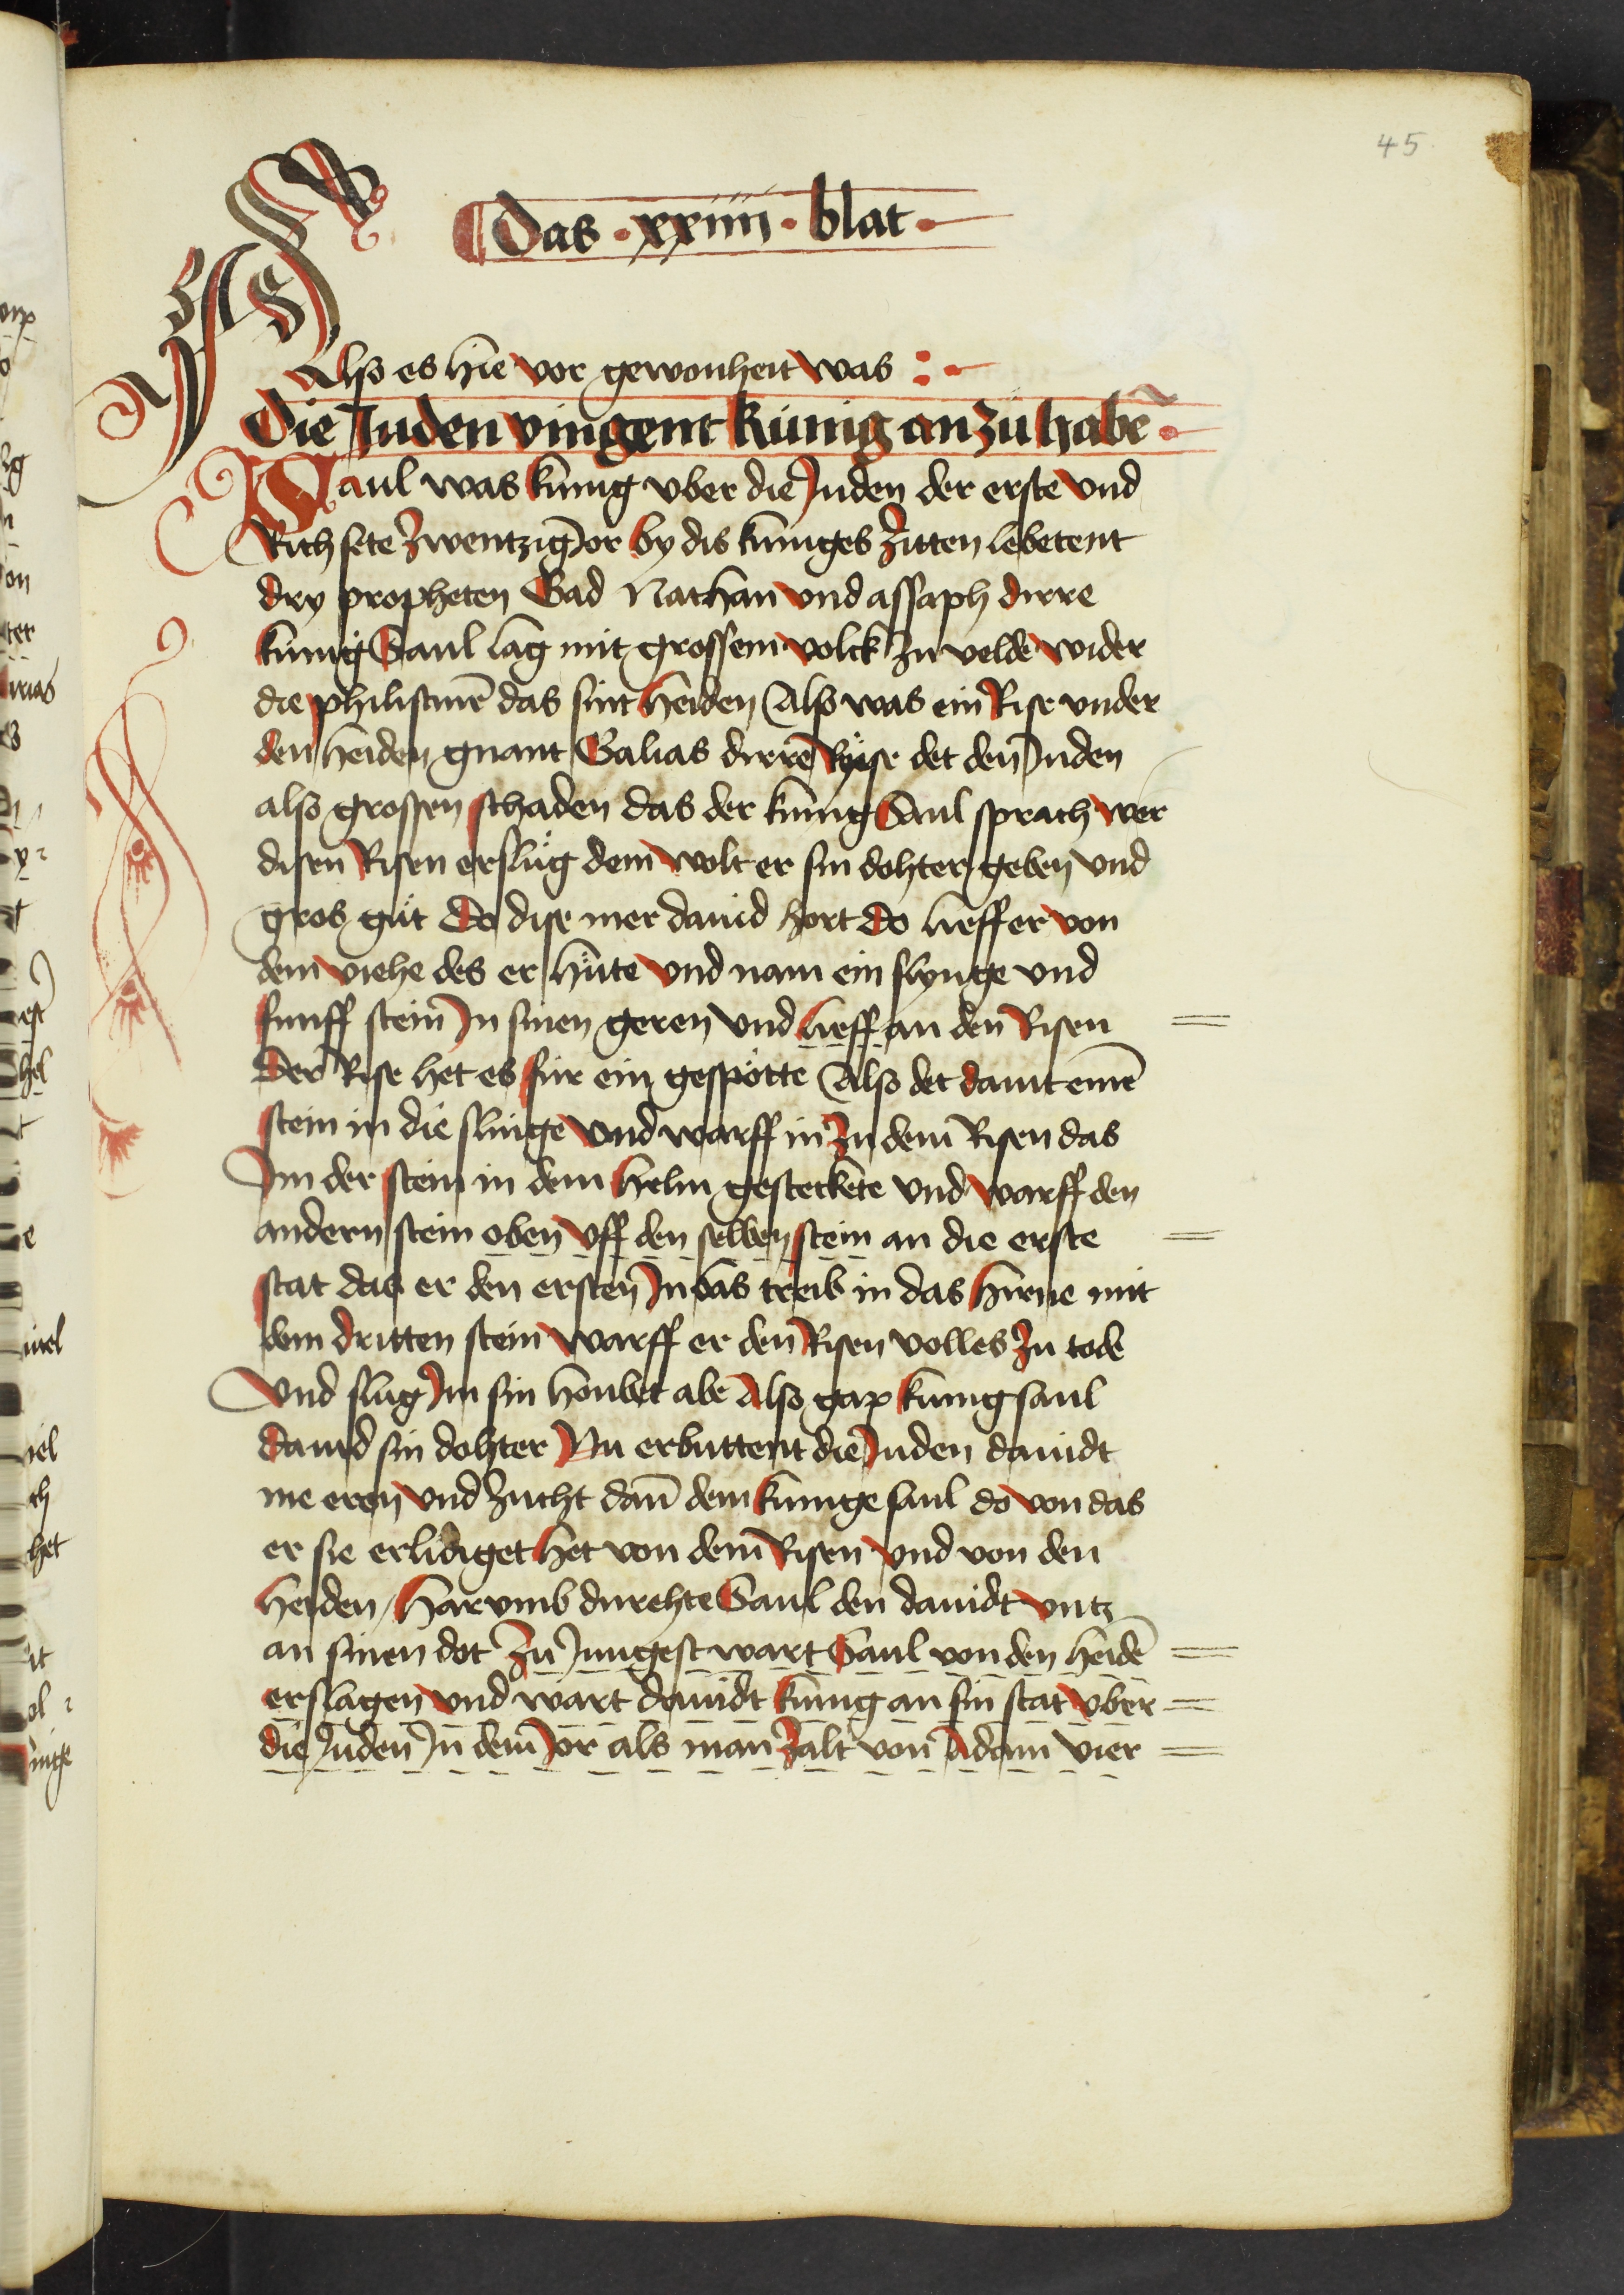 45
Das · xxiiii · blat ·
Also es hie vor gewonheit was :
Die Juden vingent künig an zü habē ·
Saul was kunig vber die Juden der erste vnd
Rich sete zwentzig Jor by dis kuniges zitten lebetent
dry propheten Gad Nathan vnd assaph dirre
kunig Saul lag mit grossem volck zu velde wider
die philistinē das sint heiden Also was ein Rise vnder
den heiden gnant Galias dirre Ryse det den Juden
also grossen schaden das der kunig Saul sprach wer
disen Risen erslüg dem wolt er sin dohter geben vnd
gros güt Do dise mer dauid hort do lieff er von
dem viehe des er hüte vnd nam ein slynge vnd
funff stein In sinen geren vnd lieff an den Risen
Der Rise het es für ein gespötte Also det dauit einē
stein in die slinge vnd warff in zu dem Risen das
Im der stein in dem helm gesteckete vnd warff den
andern stein oben vff den selben stein an die erste
stat das er den ersten In das treib in das hirne mit
dem dritten stein warff er den Risen volles zu tode
Vnd slug Im sin houbet abe Also gap kunig saul
dauid sin dohter Nu erbuttent die Juden dauidt
me eren vnd zucht dan̄ dem kunige saul do von das
er sie erlidiget het von dem Risen vnd von den
heiden / Harvmb durehte Saul den dauidt vntz
an sinen dot Zu Jungest wart Saul von den heidē
erslagen vnd wart dauidt kunig an sin stat vber
die Juden In dem Jor als man zalt von Adam vier